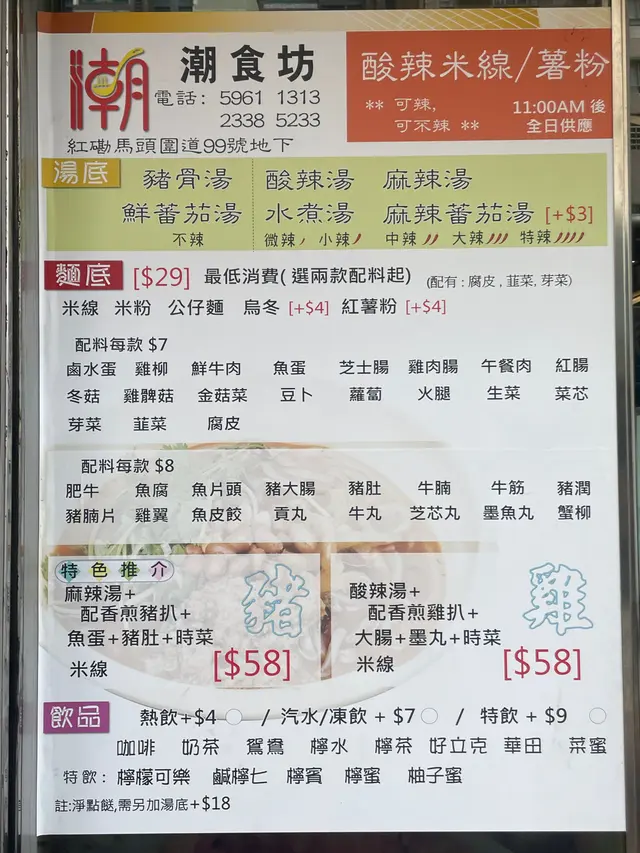 潮 潮食坊
電話: 5961 1313
2338 5233
紅磡馬頭圍道99號地下
酸辣米線/薯粉
** 可辣,
可不辣 **
11:00AM 後
全日供應
湯底
豬骨湯 酸辣湯 麻辣湯
鮮蕃茄湯 水煮湯 麻辣蕃茄湯 [+$3]
不辣 微辣 小辣 中辣 大辣 特辣
麵底 [$29] 最低消費( 選兩款配料起) (配有 : 腐皮 , 韮菜, 芽菜)
米線 米粉 公仔麵 烏冬 [+$4] 紅薯粉 [+$4]
配料每款 $7
鹵水蛋 雞柳 鮮牛肉 魚蛋 芝士腸 雞肉腸 午餐肉 紅腸
冬菇 雞髀菇 金菇菜 豆卜 蘿蔔 火腿 生菜 菜芯
芽菜 韮菜 腐皮
配料每款 $8
肥牛 魚腐 魚片頭 豬大腸 豬肚 牛腩 牛筋 豬潤
豬腩片 雞翼 魚皮餃 貢丸 牛丸 芝芯丸 墨魚丸 蟹柳
特色推介
麻辣湯+
配香煎豬扒+
魚蛋+豬肚+時菜
米線 [$58]
豬
酸辣湯+
配香煎雞扒+
大腸+墨丸+時菜
米線 [$58]
雞
飲品 熱飲+$4 / 汽水/凍飲 + $7 / 特飲 + $9
咖啡 奶茶 鴛鴦 檸水 檸茶 好立克 華田 菜蜜
特飲 : 檸檬可樂 鹹檸七 檸賓 檸蜜 柚子蜜
註:淨點餸,需另加湯底+$18